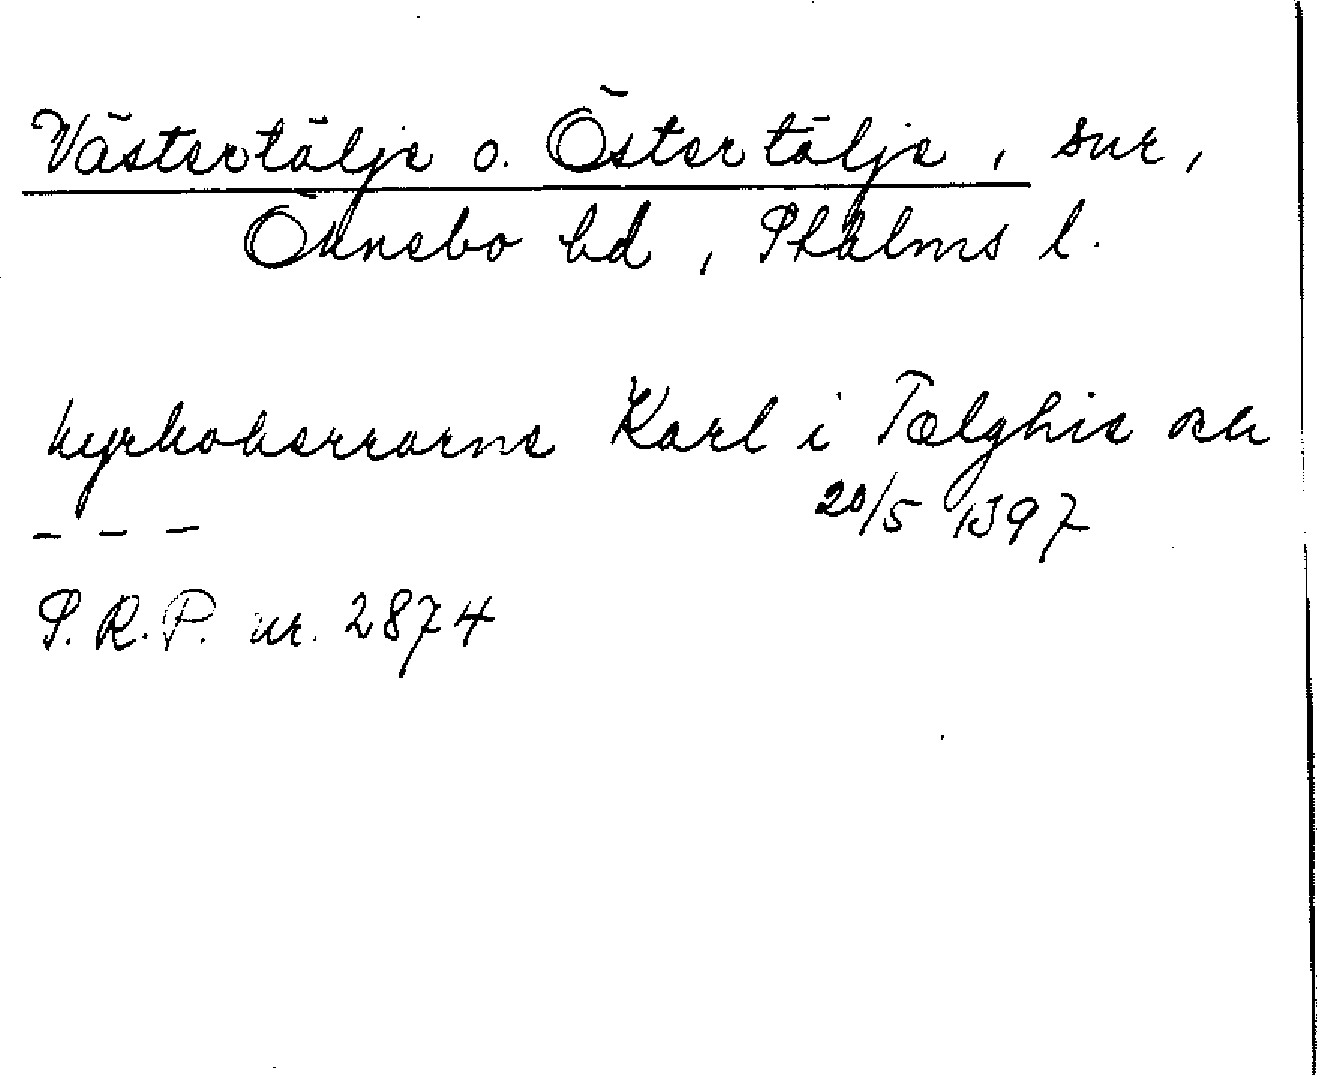 Västertälje o. Östertälje, snr,
Öknebo hd, Sthlms l.
kyrkoherrarne Karl i Tælghie och
- - - 20/5 1397
S.R.P. nr. 2874